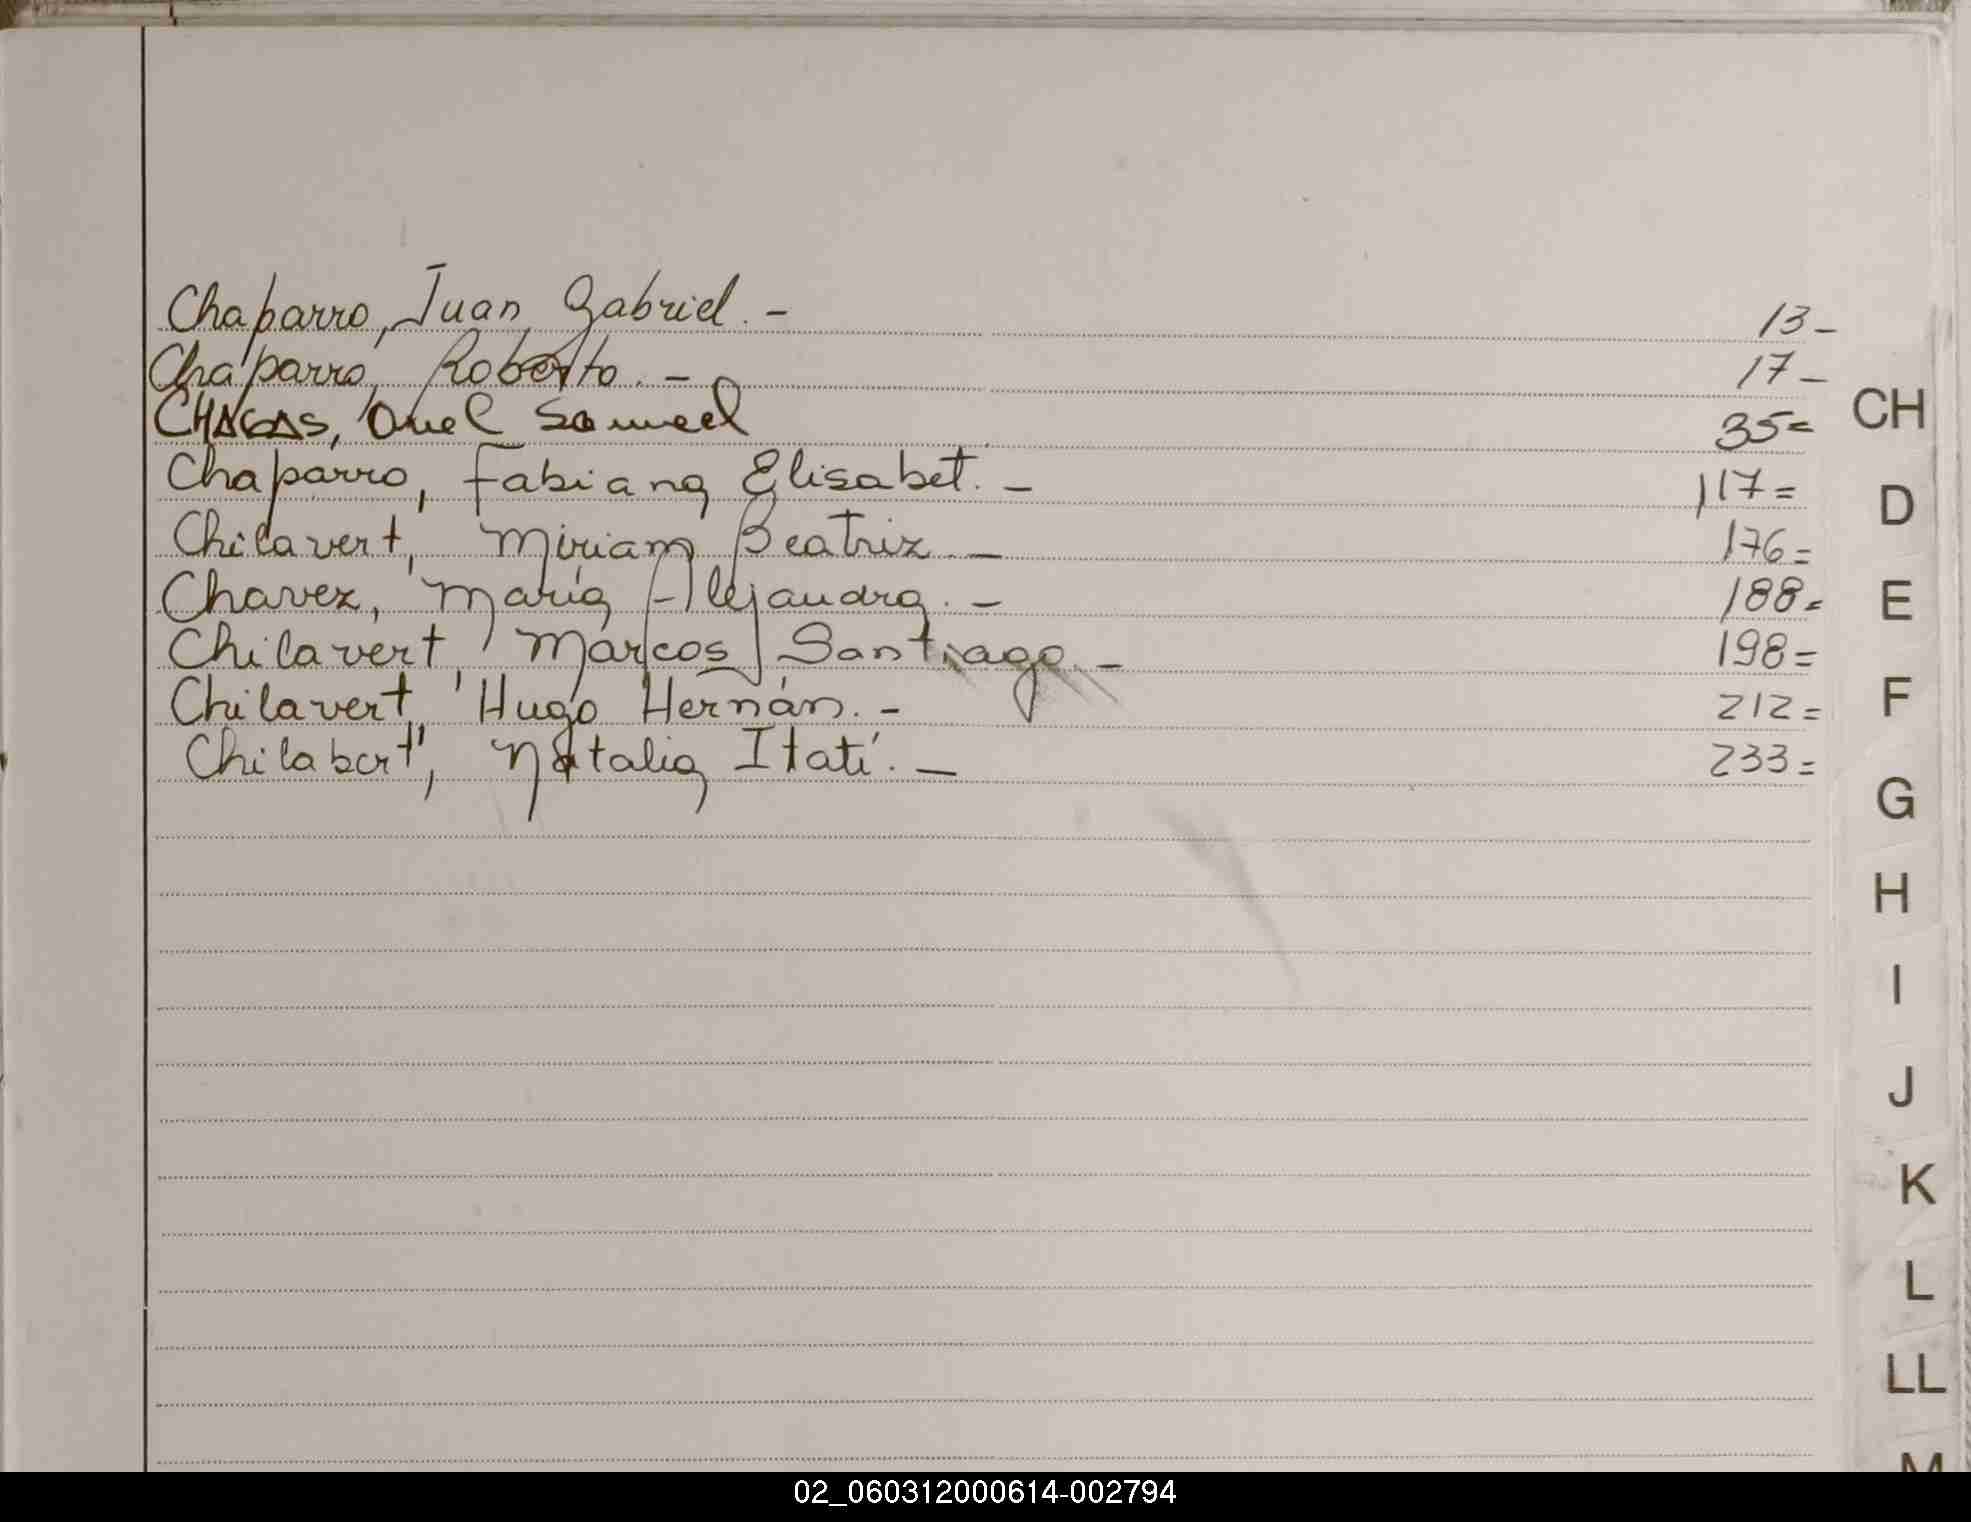 Chaparro, Juan Gabriel. - 13-
Chaparro, Roberto. - 17-
CHAGAS, Samuel 35=
Chaparro, Fabiana Elisabet. - 117=
Chilavert, Miriam Beatriz - 176=
Chavez, María Alejandra. - 188=
Chilavert, Marcos Santiago. - 198=
Chilavert, Hugo Hernán. - 212=
Chilabert, Natalia Itatí. - 233=
CH
D
E
F
G
H
I
J
K
L
LL
M
02_060312000614-002794